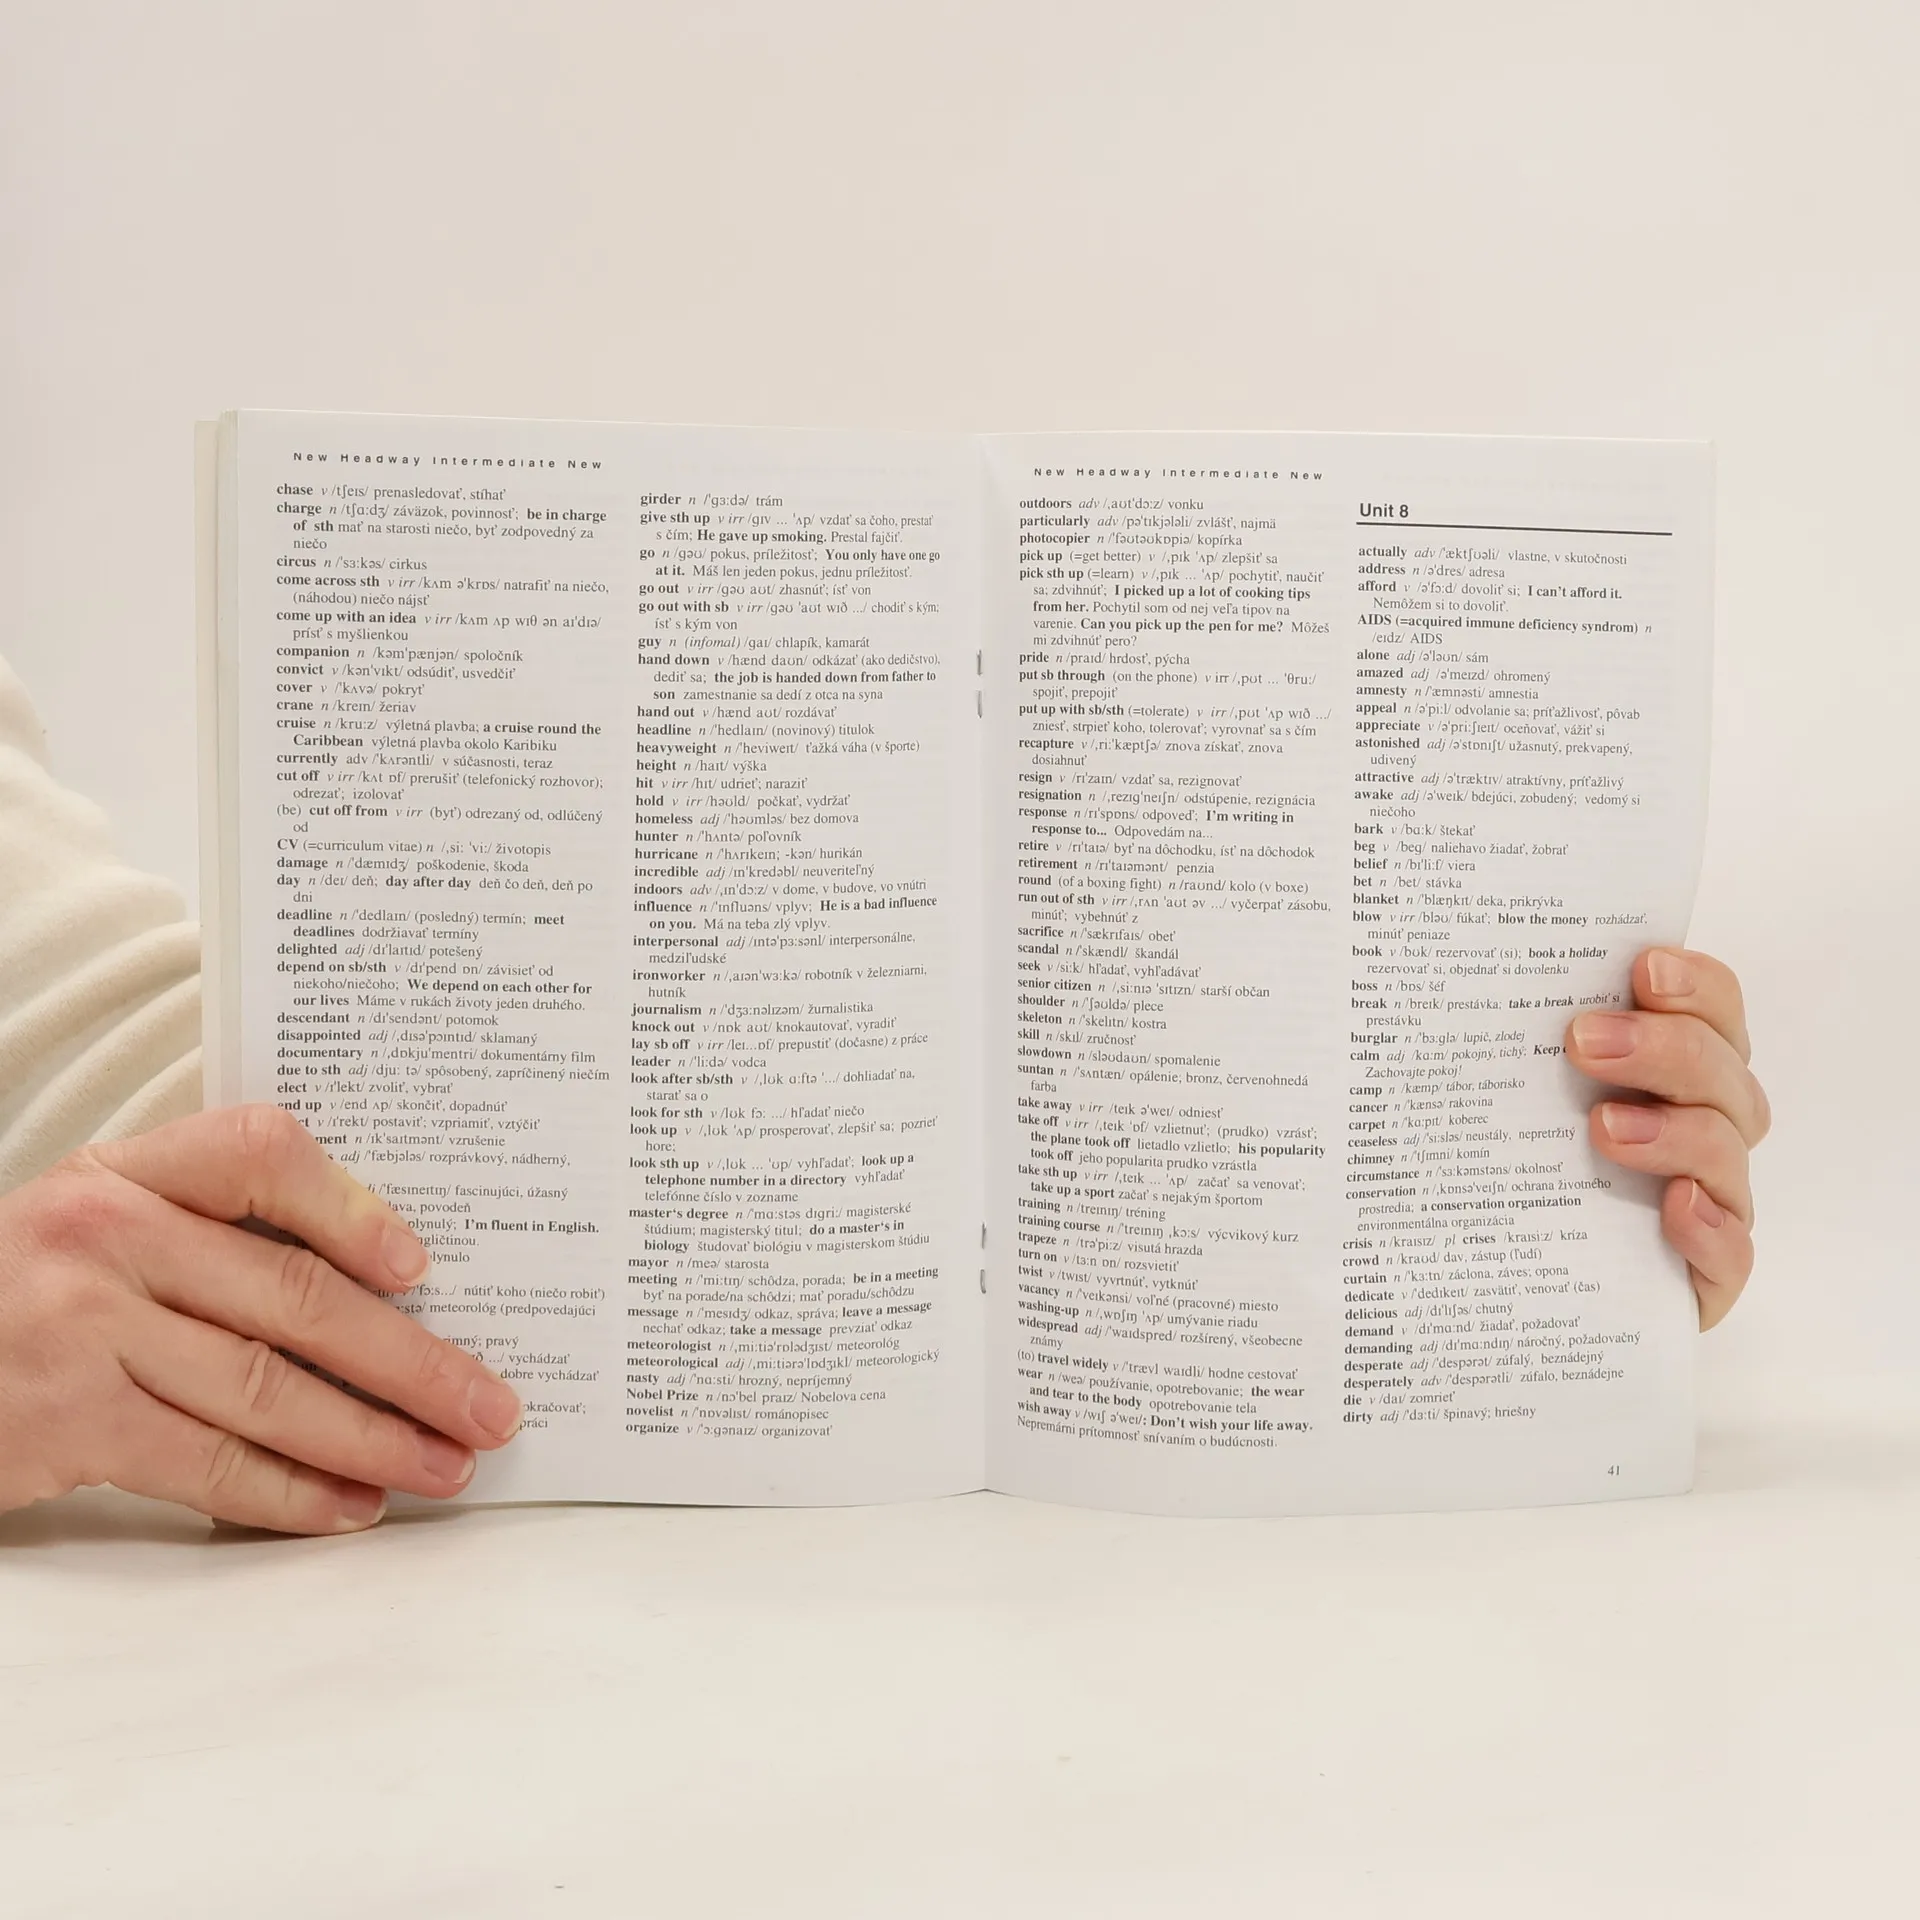 New Headway Intermediate New
chase v /tʃeɪs/ prenasledovať, stíhať
charge n /tʃɑ:dʒ/ záväzok, povinnosť; be in charge
of sth mať na starosti niečo, byť zodpovedný za
niečo
circus n /'sɜ:kəs/ cirkus
come across sth v irr /kʌm ə'krɒs/ natrafiť na niečo,
(náhodou) niečo nájsť
come up with an idea v irr /kʌm ʌp wɪθ ən aɪ'dɪə/
prísť s myšlienkou
companion n /kəm'pænjən/ spoločník
convict v /kən'vɪkt/ odsúdiť, usvedčiť
cover v /'kʌvə/ pokryť
crane n /kreɪn/ žeriav
cruise n /kru:z/ výletná plavba; a cruise round the
Caribbean výletná plavba okolo Karibiku
currently adv /'kʌrəntli/ v súčasnosti, teraz
cut off v irr /kʌt ɒf/ prerušiť (telefonický rozhovor);
odrezať; izolovať
(be) cut off from v irr (byť) odrezaný od, odlúčený
od
CV (=curriculum vitae) n /,si: 'vi:/ životopis
damage n /'dæmɪdʒ/ poškodenie, škoda
day n /deɪ/ deň; day after day deň čo deň, deň po
dni
deadline n /'dedlaɪn/ (posledný) termín; meet
deadlines dodržiavať termíny
delighted adj /dɪ'laɪtɪd/ potešený
depend on sb/sth v /dɪ'pend ɒn/ závisieť od
niekoho/niečoho; We depend on each other for
our lives Máme v rukách životy jeden druhého.
descendant n /dɪ'sendənt/ potomok
disappointed adj /,dɪsə'pɔɪntɪd/ sklamaný
documentary n /,dɒkju'mentri/ dokumentárny film
due to sth adj /dju: tə/ spôsobený, zapríčinený niečím
elect v /ɪ'lekt/ zvoliť, vybrať
end up v /end ʌp/ skončiť, dopadnúť
v /ɪ'rekt/ postaviť; vzpriamiť, vztýčiť
n /ɪk'saɪtmənt/ vzrušenie
adj /'fæbjələs/ rozprávkový, nádherný,
/'fæsɪneɪtɪŋ/ fascinujúci, úžasný
povodeň
plynulý; I'm fluent in English.
nútiť koho (niečo robiť)
meteorológ (predpovedajúci
pravý
.../ vychádzať
dobre vychádzať
girder n /'gɜ:də/ trám
give sth up v irr /gɪv ... 'ʌp/ vzdať sa čoho, prestať
s čím; He gave up smoking. Prestal fajčiť.
go n /gəʊ/ pokus, príležitosť; You only have one go
at it. Máš len jeden pokus, jednu príležitosť.
go out v irr /gəʊ aʊt/ zhasnúť; ísť von
go out with sb v irr /gəʊ 'aʊt wɪð .../ chodiť s kým;
ísť s kým von
guy n (infomal) /gaɪ/ chlapík, kamarát
hand down v /hænd daʊn/ odkázať (ako dedičstvo),
dediť sa; the job is handed down from father to
son zamestnanie sa dedí z otca na syna
hand out v /hænd aʊt/ rozdávať
headline n /'hedlaɪn/ (novinový) titulok
heavyweight n /'heviweɪt/ ťažká váha (v športe)
height n /haɪt/ výška
hit v irr /hɪt/ udrieť; naraziť
hold v irr /həʊld/ počkať, vydržať
homeless adj /'həʊmləs/ bez domova
hunter n /'hʌntə/ poľovník
hurricane n /'hʌrɪkeɪn; -kən/ hurikán
incredible adj /ɪn'kredəbl/ neuveriteľný
indoors adv /,ɪn'dɔ:z/ v dome, v budove, vo vnútri
influence n /'ɪnfluəns/ vplyv; He is a bad influence
on you. Má na teba zlý vplyv.
interpersonal adj /ɪntə'pɜ:sənl/ interpersonálne,
medziľudské
ironworker n /,aɪən'wɜ:kə/ robotník v železniarni,
hutník
journalism n /'dʒɜ:nəlɪzəm/ žurnalistika
knock out v /nɒk aʊt/ knokautovať, vyradiť
lay sb off v irr /leɪ...ɒf/ prepustiť (dočasne) z práce
leader n /'li:də/ vodca
look after sb/sth v /,lʊk ɑ:ftə '.../ dohliadať na,
starať sa o
look for sth v /lʊk fɔ: .../ hľadať niečo
look up v /,lʊk 'ʌp/ prosperovať, zlepšiť sa; pozrieť
hore;
look sth up v /,lʊk ... 'ʊp/ vyhľadať; look up a
telephone number in a directory vyhľadať
telefónne číslo v zozname
master's degree n /'mɑ:stəs dɪgri:/ magisterské
štúdium; magisterský titul; do a master's in
biology študovať biológiu v magisterskom štúdiu
mayor n /meə/ starosta
meeting n /'mi:tɪŋ/ schôdza, porada; be in a meeting
byť na porade/na schôdzi; mať poradu/schôdzu
message n /'mesɪdʒ/ odkaz, správa; leave a message
nechať odkaz; take a message prevziať odkaz
meteorologist n /,mi:tiə'rɒlədʒɪst/ meteorológ
meteorological adj /,mi:tiərə'lɒdʒɪkl/ meteorologický
nasty adj /'nɑ:sti/ hrozný, nepríjemný
Nobel Prize n /nə'bel praɪz/ Nobelova cena
novelist n /'nɒvəlɪst/ románopisec
organize v /'ɔ:gənaɪz/ organizovať
New Headway Intermediate New
outdoors adv /,aʊt'dɔ:z/ vonku
particularly adv /pə'tɪkjələli/ zvlášť, najmä
photocopier n /'fəʊtəʊkɒpiə/ kopírka
pick up (=get better) v /,pɪk 'ʌp/ zlepšiť sa
pick sth up (=learn) v /,pɪk ... 'ʌp/ pochytiť, naučiť
sa; zdvihnúť; I picked up a lot of cooking tips
from her. Pochytil som od nej veľa tipov na
varenie. Can you pick up the pen for me? Môžeš
mi zdvihnúť pero?
pride n /praɪd/ hrdosť, pýcha
put sb through (on the phone) v irr /,pʊt ... 'θru:/
spojiť, prepojiť
put up with sb/sth (=tolerate) v irr /,pʊt 'ʌp wɪð .../
zniesť, strpieť koho, tolerovať; vyrovnať sa s čím
recapture v /,ri:'kæptʃə/ znova získať, znova
dosiahnuť
resign v /rɪ'zaɪn/ vzdať sa, rezignovať
resignation n /,rezɪg'neɪʃn/ odstúpenie, rezignácia
response n /rɪ'spɒns/ odpoveď; I'm writing in
response to... Odpovedám na...
retire v /rɪ'taɪə/ byť na dôchodku, ísť na dôchodok
retirement n /rɪ'taɪəmənt/ penzia
round (of a boxing fight) n /raʊnd/ kolo (v boxe)
run out of sth v irr /,rʌn 'aʊt əv .../ vyčerpať zásobu,
minúť; vybehnúť z
sacrifice n /'sækrɪfaɪs/ obeť
scandal n /'skændl/ škandál
seek v /si:k/ hľadať, vyhľadávať
senior citizen n /,si:nɪə 'sɪtɪzn/ starší občan
shoulder n /'ʃəʊldə/ plece
skeleton n /'skelɪtn/ kostra
skill n /skɪl/ zručnosť
slowdown n /sləʊdaʊn/ spomalenie
suntan n /'sʌntæn/ opálenie; bronz, červenohnedá
farba
take away v irr /teɪk ə'weɪ/ odniesť
take off v irr /,teɪk 'ɒf/ vzlietnuť; (prudko) vzrásť;
the plane took off lietadlo vzlietlo; his popularity
took off jeho popularita prudko vzrástla
take sth up v irr /,teɪk ... 'ʌp/ začať sa venovať;
take up a sport začať s nejakým športom
training n /treɪnɪŋ/ tréning
training course n /'treɪnɪŋ ,kɔ:s/ výcvikový kurz
trapeze n /trə'pi:z/ visutá hrazda
turn on v /tɜ:n ɒn/ rozsvietiť
twist v /twɪst/ vyvrtnúť, vytknúť
vacancy n /'veɪkənsi/ voľné (pracovné) miesto
washing-up n /,wɒʃɪŋ 'ʌp/ umývanie riadu
widespread adj /'waɪdspred/ rozšírený, všeobecne
známy
(to) travel widely v /'trævl waɪdli/ hodne cestovať
wear n /weə/ používanie, opotrebovanie; the wear
and tear to the body opotrebovanie tela
wish away v /wɪʃ ə'weɪ/: Don't wish your life away.
Nepremárni prítomnosť snívaním o budúcnosti.
Unit 8
actually adv /'æktʃʊəli/ vlastne, v skutočnosti
address n /ə'dres/ adresa
afford v /ə'fɔ:d/ dovoliť si; I can't afford it.
Nemôžem si to dovoliť.
AIDS (=acquired immune deficiency syndrom) n
/eɪdz/ AIDS
alone adj /ə'ləʊn/ sám
amazed adj /ə'meɪzd/ ohromený
amnesty n /'æmnəsti/ amnestia
appeal n /ə'pi:l/ odvolanie sa; príťažlivosť, pôvab
appreciate v /ə'pri:ʃieɪt/ oceňovať, vážiť si
astonished adj /ə'stɒnɪʃt/ užasnutý, prekvapený,
udivený
attractive adj /ə'træktɪv/ atraktívny, príťažlivý
awake adj /ə'weɪk/ bdejúci, zobudený; vedomý si
niečoho
bark v /bɑ:k/ štekať
beg v /beg/ naliehavo žiadať, žobrať
belief n /bɪ'li:f/ viera
bet n /bet/ stávka
blanket n /'blæŋkɪt/ deka, prikrývka
blow v irr /bləʊ/ fúkať; blow the money rozhádzať,
minúť peniaze
book v /bʊk/ rezervovať (si); book a holiday
rezervovať si, objednať si dovolenku
boss n /bɒs/ šéf
break n /breɪk/ prestávka; take a break urobiť si
prestávku
burglar n /'bɜ:glə/ lupič, zlodej
calm adj /kɑ:m/ pokojný, tichý; Keep
Zachovajte pokoj!
camp n /kæmp/ tábor, táborisko
cancer n /'kænsə/ rakovina
carpet n /'kɑ:pɪt/ koberec
ceaseless adj /'si:sləs/ neustály, nepretržitý
chimney n /'tʃɪmni/ komín
circumstance n /'sɜ:kəmstəns/ okolnosť
conservation n /,kɒnsə'veɪʃn/ ochrana životného
prostredia; a conservation organization
environmentálna organizácia
crisis n /kraɪsɪz/ pl crises /kraɪsi:z/ kríza
crowd n /kraʊd/ dav, zástup (ľudí)
curtain n /'kɜ:tn/ záclona, záves; opona
dedicate v /'dedɪkeɪt/ zasvätiť, venovať (čas)
delicious adj /dɪ'lɪʃəs/ chutný
demand v /dɪ'mɑ:nd/ žiadať, požadovať
demanding adj /dɪ'mɑ:ndɪŋ/ náročný, požadovačný
desperate adj /'despərət/ zúfalý, beznádejný
desperately adv /'despərətli/ zúfalo, beznádejne
die v /daɪ/ zomrieť
dirty adj /'dɜ:ti/ špinavý; hriešny
41